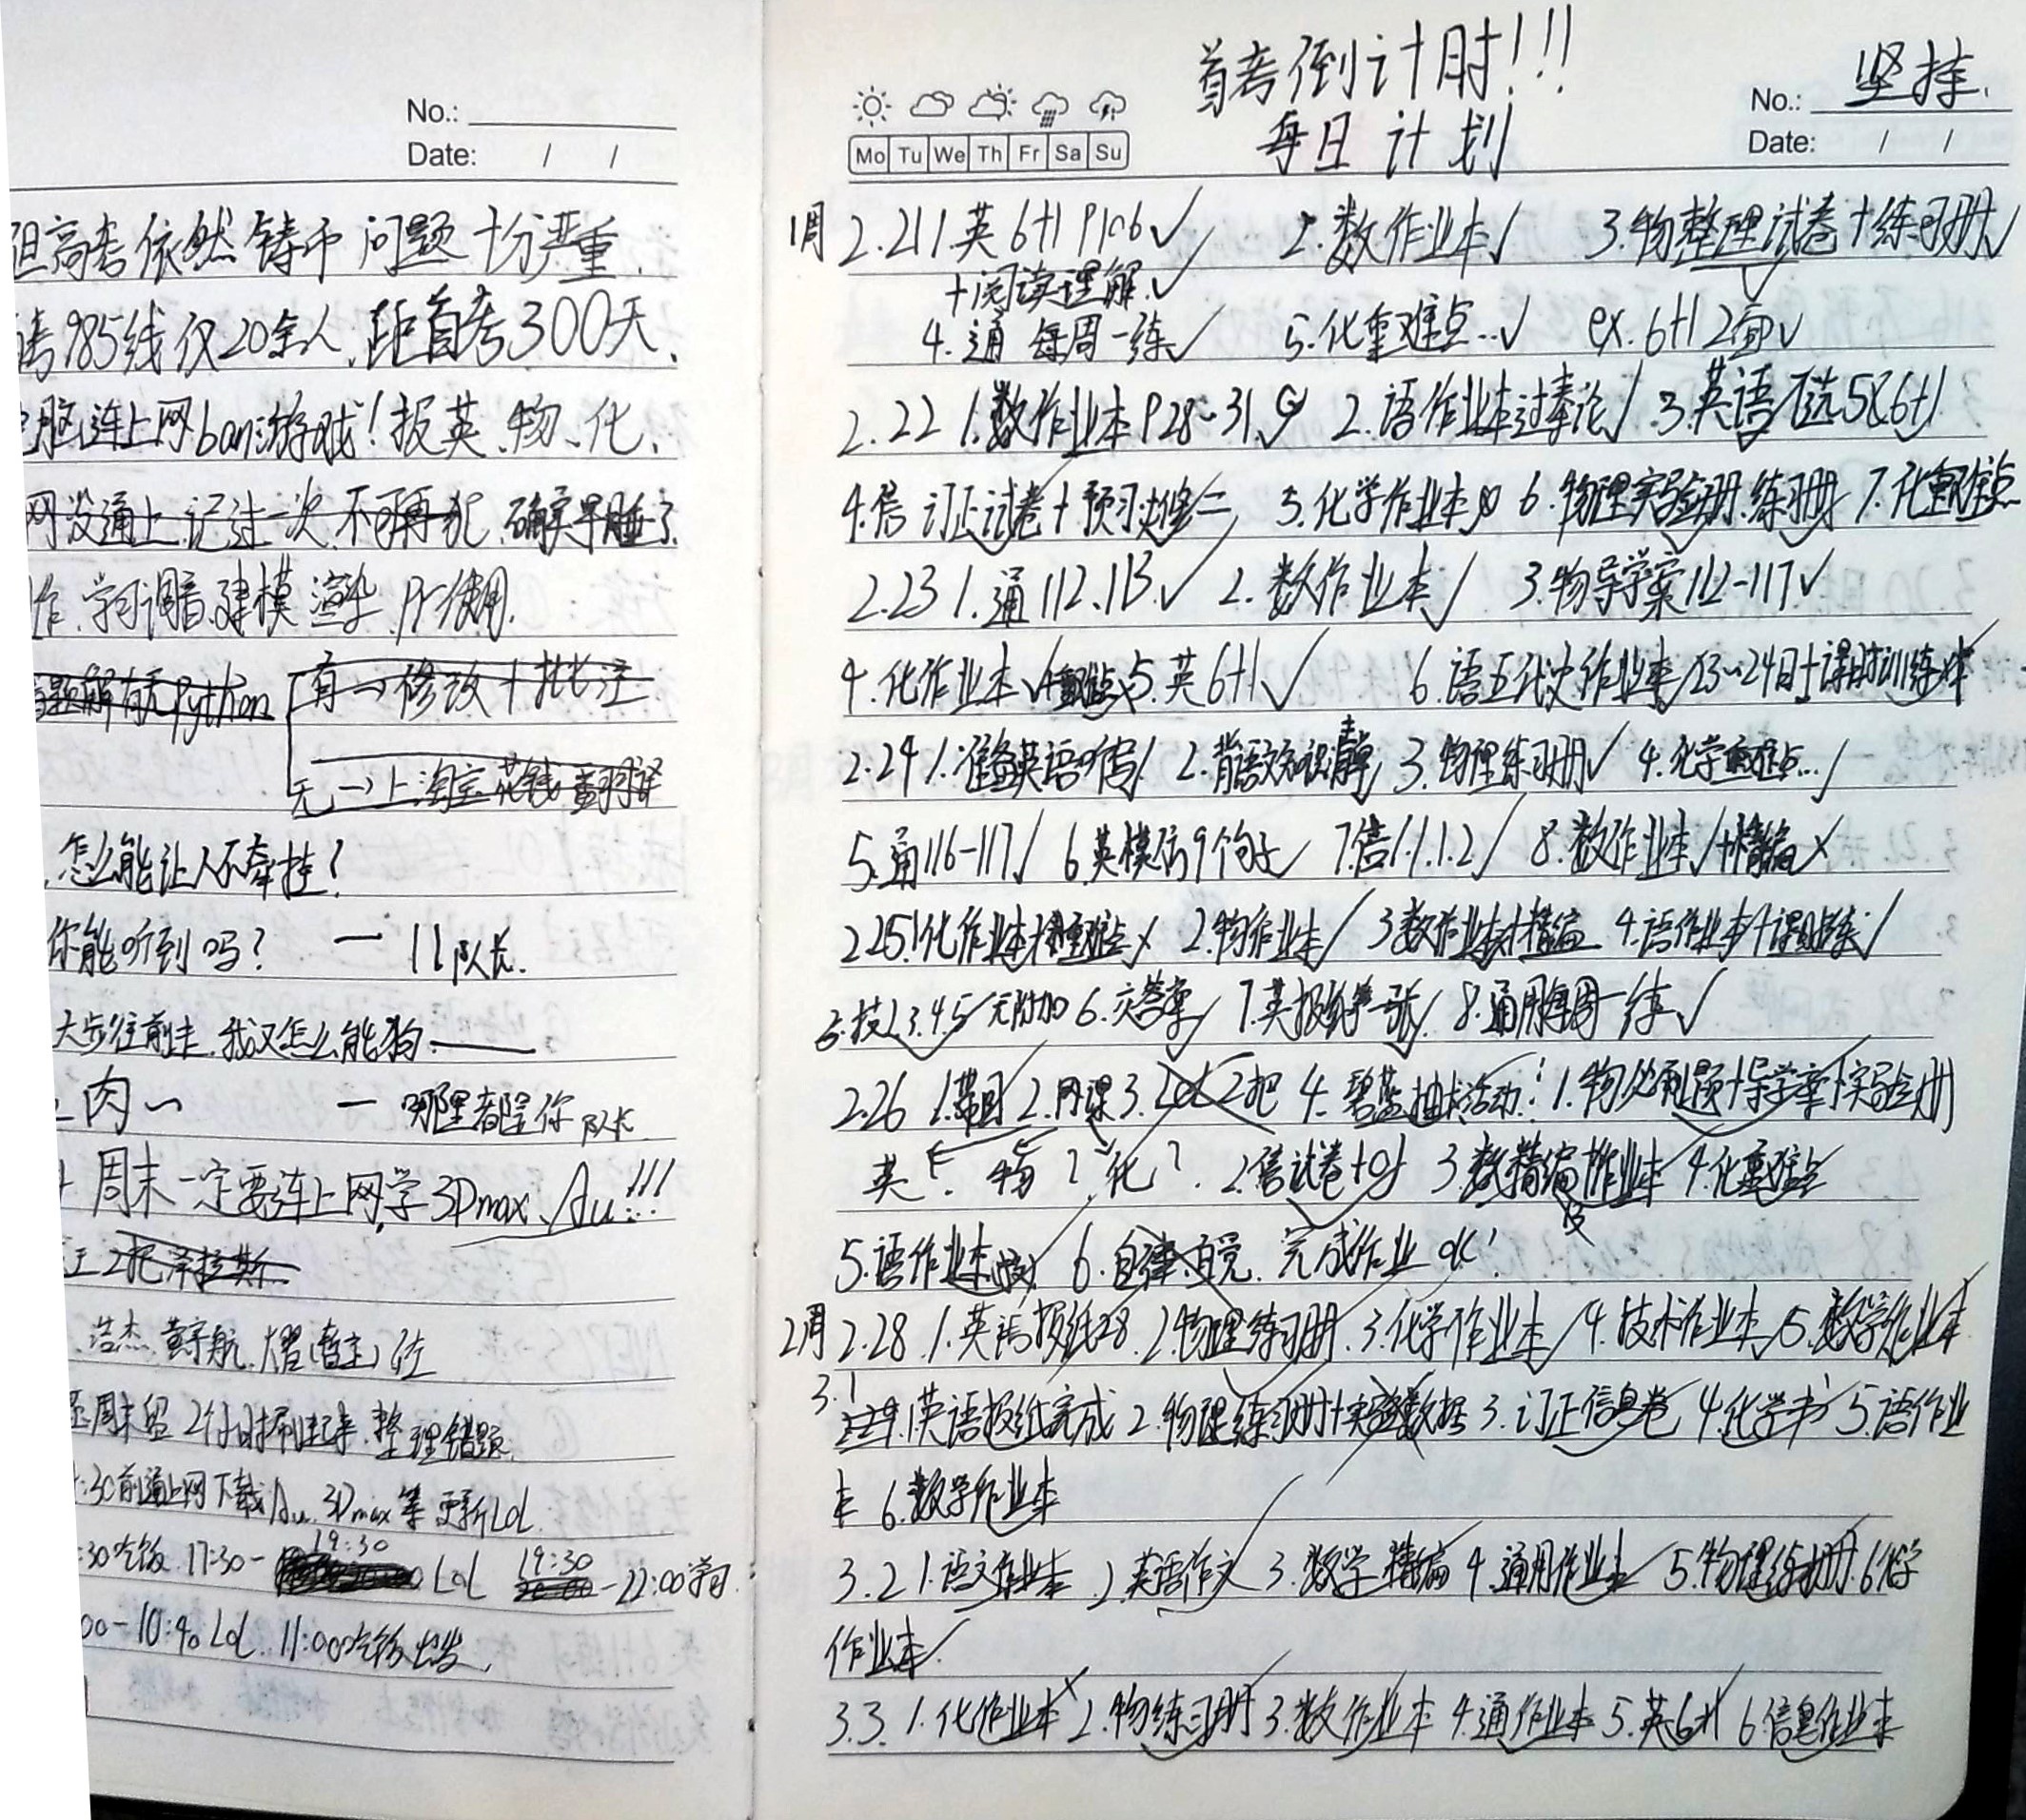 No.:
Date: / /
但高考依然铸币 问题十分严重.
考985线仅20余人.距首考300天.
电脑连上网ban游戏!报英.物.化.
网没通上.记过一次.不可再犯.确实早睡了
作.学习调音.建模 渲染.Pr使用.
题解有无Python 有→修改+批注
无→上淘宝花钱翻译
.怎么能让人不牵挂?
你能听到吗? 一 11队长.
大步往前走.我又怎么能狗
肉~ 一 哪里都是你队长
周末一定要连上网,学3Dmax、Au!!!
2把
浩杰.黄宇航.
周末留2个小时刷起来.整理错题.
:30前通上网下载Au.3Dmax等 更新LoL.
:30吃饭 17:30-19:30 LoL 19:30-22:00学习.
00-10:40 LoL.11:00吃饭出发.
首考倒计时!!!
每日计划
No.: 坚持.
Mo Tu We Th Fr Sa Su
Date: / /
1周 2.21 1.英6+1 P106✓ 2.数作业本✓ 3.物整理试卷+练习册✓
+阅读理解.✓
4.通 每周一练✓ 5.化重难点..✓ ex. 6+1 2面✓
2.22 1.数作业本P28~31.✓ 2.语作业本过秦论✓ 3.英语 选5&6+1
4.信 订正试卷+预习必修二 5.化学作业本 6.物理实验册.练习册 7.化重难点
2.23 1.通112.113.✓ 2.数作业本✓ 3.物导学案112-117✓
4.化作业本✓+重难点× 5.英6+1✓ 6.语五代史作业本/23~24日+课时训练
2.24 1.准备英语听写✓ 2.背语文知识清单 3.物理练习册✓ 4.化学重难点...✓
5.通116-117✓ 6.英模仿9个句子✓ 7.信1.1.1.2✓ 8.数作业本✓+精编×
2.25 1.化作业本+重难点× 2.物作业本✓ 3.数作业本+精编 4.语作业本+课时练✓
5.技2.3.4.5✓无附加 6.交答案✓ 7.英报纸一张✓ 8.通用每周一练✓
2.26 1. 2.网课 3.LoL2把 4.碧蓝抽卡活动! 1.物必刷题+导学案+实验册
英? 物? 化? 2.信试卷 3.数精编+作业本 4.化重难点
5.语作业本 6.自律.自觉.完成作业 ok!
2周 2.28 1.英语报纸28 2.物理练习册.3.化学作业本✓4.技术作业本✓5.数学作业本
3.1 1.英语报纸完成 2.物理练习册+实验数据 3.订正信息卷 4.化学书 5.语作业
本 6.数学作业本
3.2 1.语文作业本 2.英语作文 3.数学精编 4.通用作业本 5.物理练习册.6.化学
作业本.
3.3 1.化作业本× 2.物练习册 3.数作业本 4.通作业本 5.英6+1 6.信息作业本